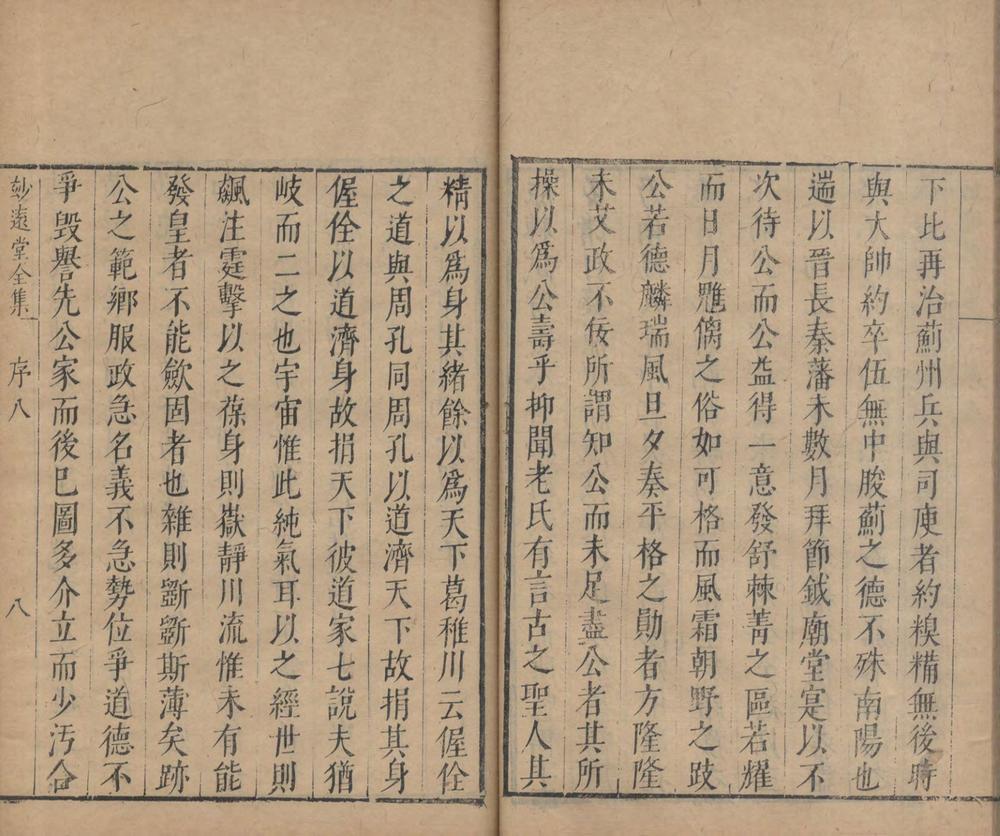 下比再治薊州兵與司庾者約糗糒無後時
與大帥約卒伍無中朘薊之德不殊南陽也
遄以晉長秦藩未數月拜節鉞廟堂寔以不
次待公而公益得一意發舒棘菁之區若耀
而日月魋儶之俗如可格而風霜朝野之跂
公若德麟瑞風旦夕奏平格之勛者方隆隆
未艾政不佞所謂知公而未足盡公者其所
操以爲公壽乎抑聞老氏有言古之聖人其
精以爲身其緒餘以爲天下葛稚川云偓佺
之道與周孔同周孔以道濟天下故捐其身
偓佺以道濟身故捐天下彼道家七說夫猶
岐而二之也宇宙惟此純氣耳以之經世則
飆注霆擊以之葆身則嶽靜川流惟未有能
發皇者不能歛固者也雜則斵斵斯薄矣跡
公之範鄉服政急名義不急勢位爭道德不
爭毀譽先公家而後巳圖多介立而少汚合
妙遠堂全集 序八 八